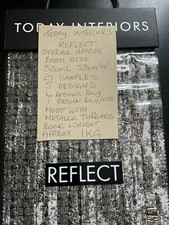 TODAY INTERIORS
TODAY INTERIORS
REFLECT
OVERALL APPROX
BOOK SIZE
32cmL 23cmW
21 SAMPLES
5 DESIGNS
1 DESIGN
MOST WITH
METALLIC THREADS
BOOK WEIGHT
APPROX 1KG
REFLECT